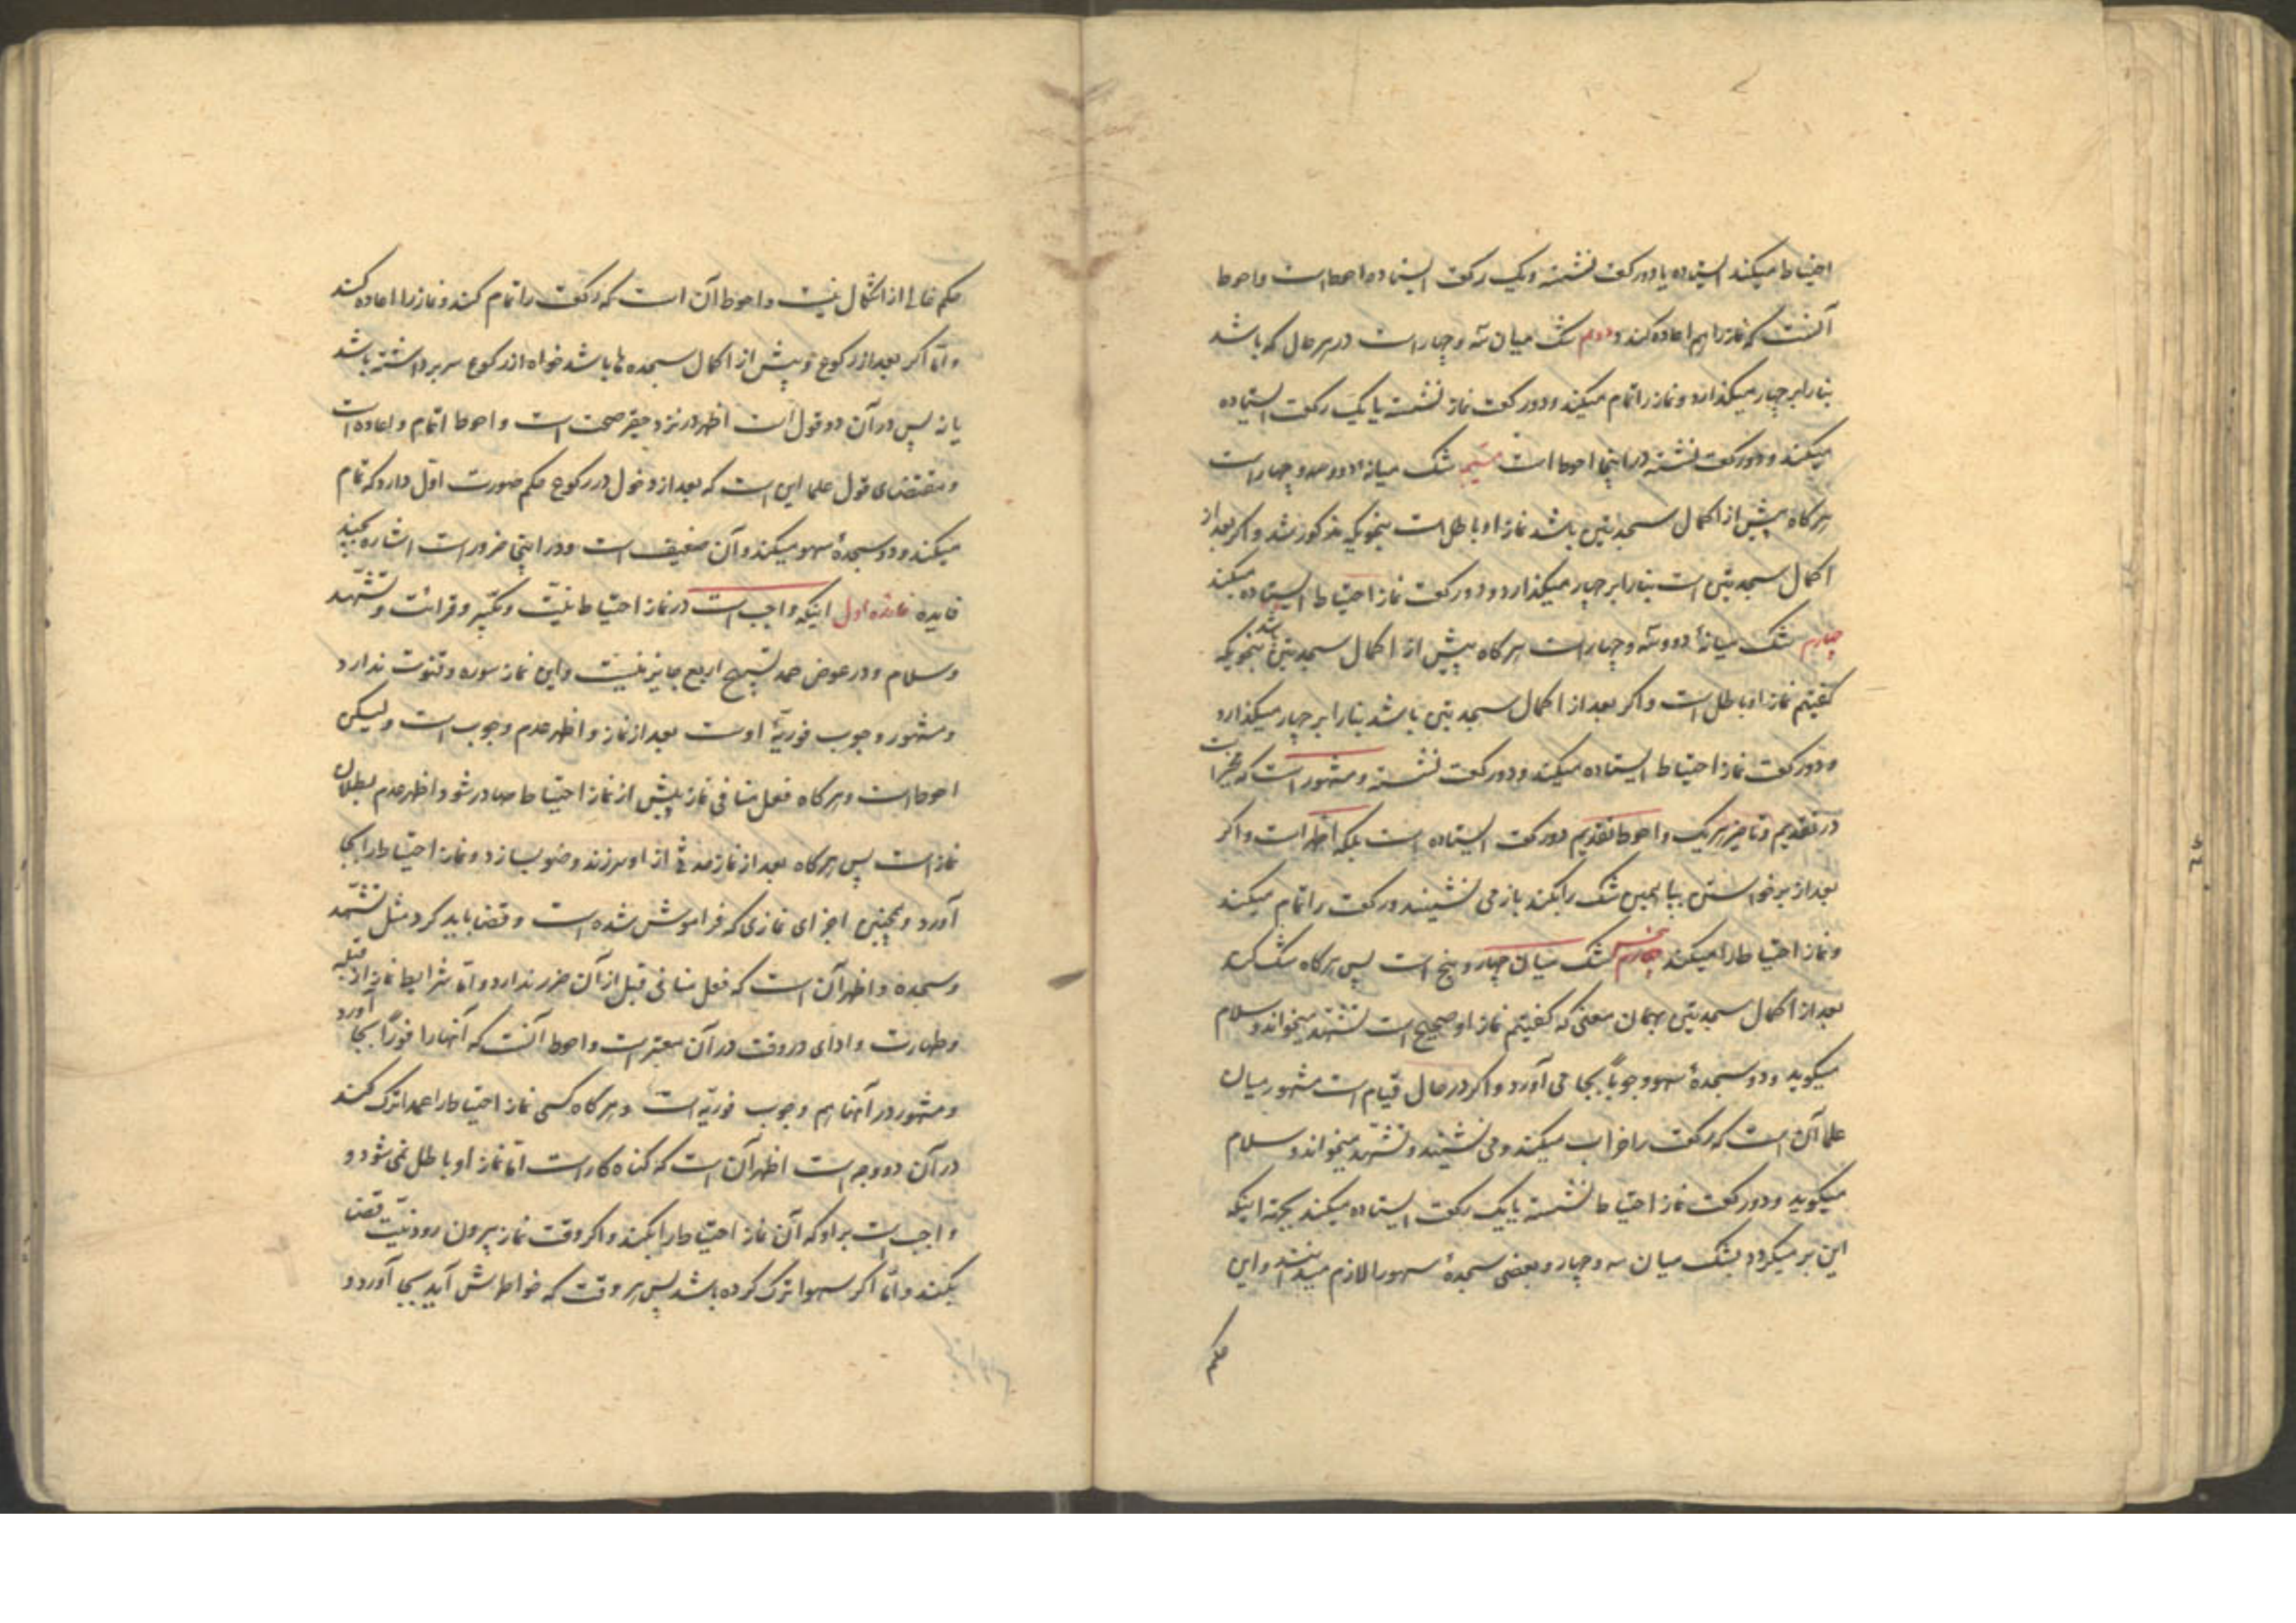 احتیاط میکند ایستاده یا دو رکعت نشسته و یک رکعت ایستاده احوط است و احوط
آنست که نماز را هم اعاده کند و دوم شک میان سه و چهار است در هر حال که باشد
بنا را بر چهار میگذارد و نماز را تمام میکند و دو رکعت نماز نشسته یا یک رکعت ایستاده
میکند و دو رکعت نشسته در اینجا احوط است سیم شک میانهٔ دو و چهار است
هرگاه پیش از اکمال سجدتین باشد نماز او باطل است بنحویکه مذکور شد و اگر بعد از
اکمال سجدتین است بنا را بر چهار میگذارد و دو رکعت نماز احتیاط ایستاده میکند
چهارم شک میانهٔ دو و سه و چهار است هرگاه پیش از اکمال سجدتین باشد بنحویکه
گفتیم نماز او باطل است و اگر بعد از اکمال سجدتین باشد بنا را بر چهار میگذارد
و دو رکعت نماز احتیاط ایستاده میکند و دو رکعت نشسته و مشهور است که مخیر است
در تقدیم و تاخیر هر یک و احوط تقدیم دو رکعت ایستاده است بلکه اظهر است و اگر
بعد از برخواستن بپا این شک را بکند باز می نشیند و رکعت را تمام میکند
و نماز احتیاط را میکند پنجم شک میان چهار و پنج است پس هرگاه شک کند
بعد از اکمال سجدتین بهمان معنی که گفتیم نماز او صحیح است تشهد میخواند و سلام
میگوید و دو سجدهٔ سهو وجوباً بجا می آورد و اگر در حال قیام است مشهور میان
علما آن است که رکعت را خراب میکند و می نشیند و تشهد میخواند و سلام
میگوید و دو رکعت نماز احتیاط نشسته یا یک رکعت ایستاده میکند بجهة اینکه
این بر میگردد بشک میان سه و چهار و بعضی سجدهٔ سهو را لازم میدانند و این
حکم
حکم خالی از اشکال نیست و احوط آن است که رکعت را تمام کند و نماز را اعاده کند
و امّا اگر بعد از رکوع و پیش از اکمال سجده ها باشد خواه از رکوع سر برداشته باشد
یا نه پس در آن دو قول است اظهر در نزد حقیر صحت است و احوط اتمام و اعاده است
و مقتضای قول علما این است که بعد از دخول در رکوع حکم صورت اول دارد که تمام
میکند و دو سجدهٔ سهو میکند و آن ضعیف است و در اینجا ضرور است اشاره بچند
فایده فائده اول اینکه واجب است در نماز احتیاط نیّت و تکبیر و قرائت و تشهّد
و سلام و در عوض حمد تسبیح اربع جایز نیست و این نماز سوره و قنوت ندارد
و مشهور وجوب فوریّهٔ اوست بعد از نماز و اظهر عدم وجوب است ولیکن
احوط است و هرگاه فعل منافی نماز پیش از نماز احتیاط صادر شود اظهر عدم بطلان
نماز است پس هرگاه بعد از نماز حدثی از او سرزند وضو بسازد و نماز احتیاط را بجا
آورد و همچنین اجزای نمازی که فراموش شده است و قضا باید کرد مثل تشهّد
و سجده و اظهر آن است که فعل منافی قبل از آن ضرر ندارد و امّا شرایط نماز از قبله
و طهارت و ادای در وقت در آن معتبر است و احوط آنست که آنها را فوراً بجا آورد
و مشهور در آنها هم وجوب فوریّه است و هرگاه کسی نماز احتیاط را عمدا ترک کند
در آن دو وجه است اظهر آن است که گناه کار است امّا نماز او باطل نمی شود و
واجب است بر او که آن نماز احتیاط را بکند و اگر وقت نماز بیرون رود نیّت قضا
بکند و امّا اگر سهوا ترک کرده باشد پس هر وقت که خواطرش آید بجا آورد و